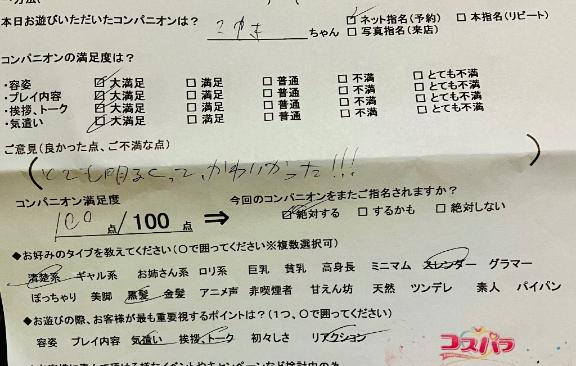 本日お遊びいただいたコンパニオンは？ こゆき ちゃん ☑ ネット指名(予約) □ 本指名(リピート)
□ 写真指名(来店)
コンパニオンの満足度は？
・容姿 ☑ 大満足 □ 満足 □ 普通 □ 不満 □ とても不満
・プレイ内容 ☑ 大満足 □ 満足 □ 普通 □ 不満 □ とても不満
・挨拶、トーク ☑ 大満足 □ 満足 □ 普通 □ 不満 □ とても不満
・気遣い ☑ 大満足 □ 満足 □ 普通 □ 不満 □ とても不満
ご意見(良かった点、ご不満な点)
(とても明るくって、かわいかった!!!)
コンパニオン満足度 今回のコンパニオンをまたご指名されますか？
100 点 / 100 点 ⇒ ☑ 絶対する □ するかも □ 絶対しない
◆お好みのタイプを教えてください(〇で囲ってください※複数選択可)
清楚系 ギャル系 お姉さん系 ロリ系 巨乳 貧乳 高身長 ミニマム スレンダー グラマー
ぽっちゃり 美脚 黒髪 金髪 アニメ声 非喫煙者 甘えん坊 天然 ツンデレ 素人 パイパン
◆お遊びの際、お客様が最も重要視するポイントは？(1つ、〇で囲ってください)
容姿 プレイ内容 気遣い 挨拶、トーク 初々しさ リアクション
コスパラ